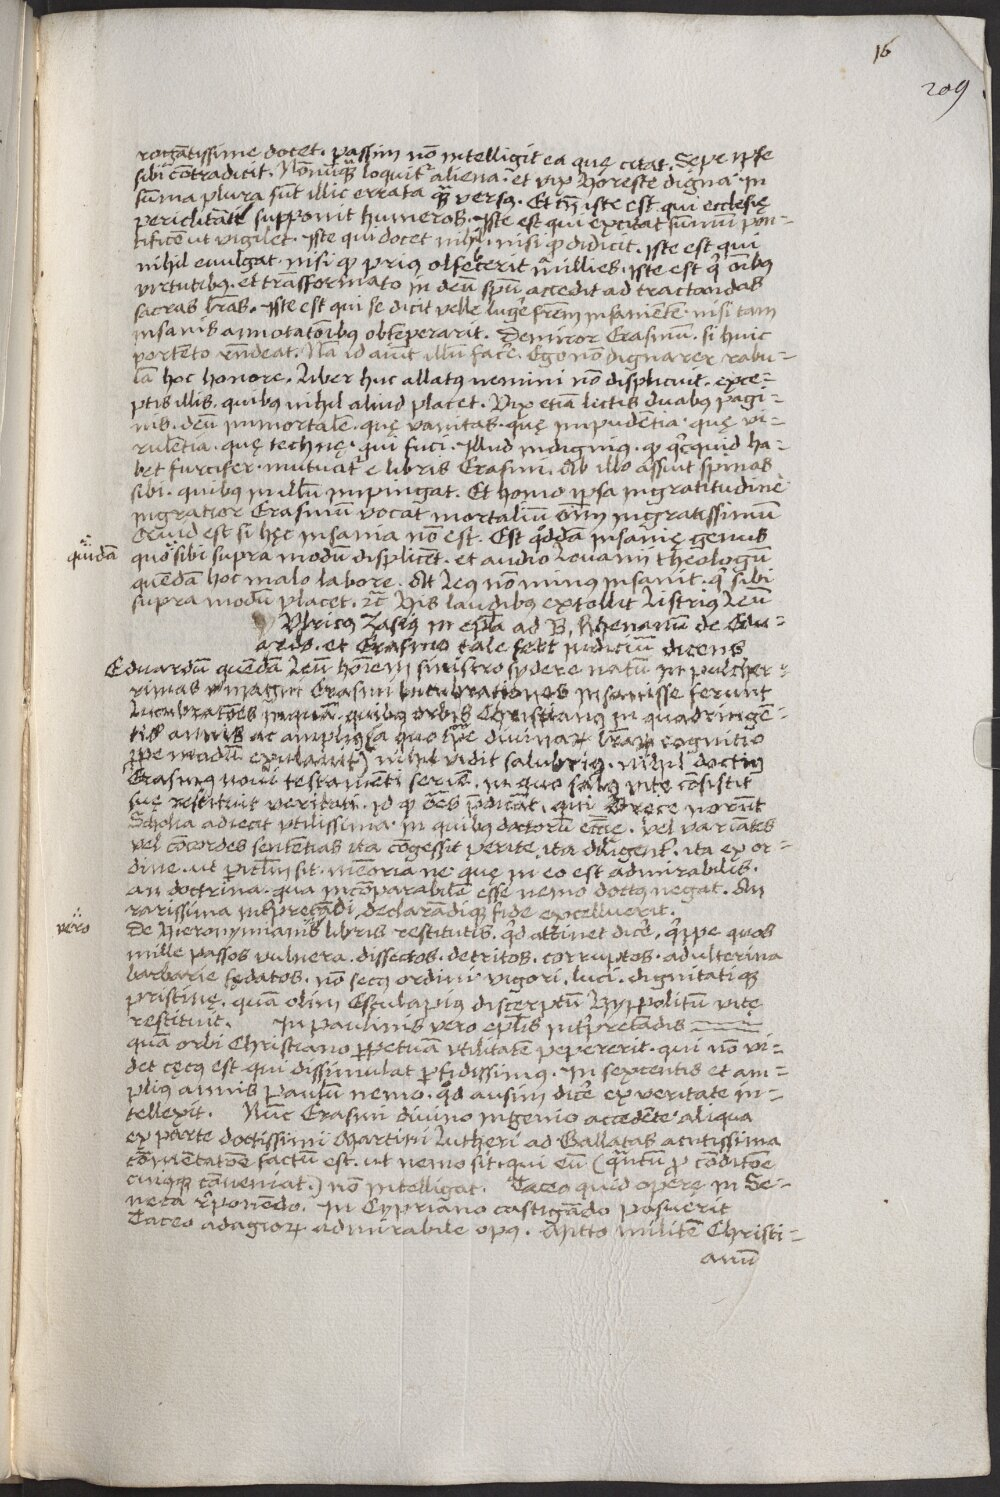 16
209
rogātissime docet. passim nō intelligit ea quę citat. Sepe ipse
sibi cōtradicit. Nōnūq̄ꝫ loquitʳ aliena. et vix Horeste digna. In
sūma plura sūt illic errata q̄ versꝰ. Et tn̄ iste est qui ecclesię
periclitāti supponit humeros. Iste est qui excitat sūmū pon-
tificē ut vigilet. Iste qui docet nihil. nisi qđ didicit. Iste est qui
nihil evulgat. nisi qđ priꝰ olfecerit millies. Iste est q̄ oībꝰ
virtutibꝰ. et trāsformato in deū spū accedit ad tractandas
sacras lr̄as. Iste est qui se dicit velle lugēr frēm insaniētē. nisi tam
insanis annotatōibꝰ obtēperarit. Demiror Erasmū. si huic
portēto rn̄deat. Nā id aiūt illū facēr. Ego nō dignarer rabu-
lā hoc honore. Liber huc allatꝰ nemini nō displicuit. exce-
ptis illis. quibꝰ nihil aliud placet. Vix etiā lectis duabꝰ pagi-
nis. deū immortalē. quę vanitas. quę impudētia. quę vi-
rulētia. quę technę. qui fuci. Illud indigniꝰ. qđ q̄cquid ha-
bet furcifer. mutuatʳ e libris Erasmi. Ab illo assūit spinas
sibi. quibꝰ in illū impingat. Et homo ipsa ingratitudine
ingratior Erasmū vocat mortaliū oīm ingratissimū
Quid est si hęc insania nō est. Est qđdā insanię genus
quidā
quo sibi supra modū displicēt. et audio Lovanij theologū
quēdā hoc malo labore. At Leꝰ nō minꝰ insanit. q̄ sibi
supra modū placet. ⁊c̄ His laudibꝰ extollit Listriꝰ Leū
Vlricꝰ Zasiꝰ in ep̄la ad B. Rhenanū de Edu-
ardo. et Erasmo tale fert iudiciū dicens
Eduardū quendā Leū hoīem sinistro sydere natū in pulcher-
rimas magni Erasmi lucubrationes insanisse ferunt
Lucubratōes inquā. quibꝰ orbis Christianꝰ in quadringē-
tis annis ac ampliꝰ (a quo tp̄e divinaꝝ lr̄aꝝ cognitio
ꝓpe modū exulavit) nihil vidit salubriꝰ. nihil doctiꝰ
Erasmꝰ novi testamēti seriē. in quo salꝰ vitę cōsistit
suę restituit veritati. id qđ oēs p̄dicāt. qui Gręce norūt
Scholia adiecit vtilissima. in quibꝰ doctorū ecc̄ię. vel variātes
vel cōcordes sentētias ita cōgessit perite. ita diligentʳ. ita ex or-
dine. ut ꝑiclū sit. memoria ne quę in eo est admirabilis.
an doctrina. qua incōparabilē esse nemo doctꝰ negat. An
rarissima int̄pretādi declarādiqꝫ fide excelluerit.
vero
De Hieronymianis libris restitutis. qđ attinet dicēr. q̄ppe quos
mille passos vulnera. dissectos. detritos. corruptos. adulterina
barbarie fędatos. nō secꝰ ordini. vigori. luci. dignitatiqꝫ
pristinę. quam olim Esculapius discerptū Hyppolitū vitę
restituit. In paulinis vero ep̄lis int̄pretādis
quā orbi Christiano ꝑpetuā vtilitatē pepererit. qui nō vi-
det cęcꝰ est. qui dissimulat ꝑfidissimꝰ. In sexcentis et am-
pliꝰ annis Paulū nemo. qđ ausim dicēr ex veritate in-
tellexit. Nūc Erasmi divino ingenio accedēte aliqua
ex parte doctissimi Martini Lutheri ad Gallatas acutissima
cōmentatōe factū est. ut nemo sit. qui eū (quātū ꝓ cōditōe
cuiusqꝫ cōveniat.) nō intelligat. Taceo quid operę in Se-
neca r̄ponēdo. In Cypriano castigādo posuerit
Taceo adagioꝝ admirabile opꝰ. Mitto militē Christi-
anū